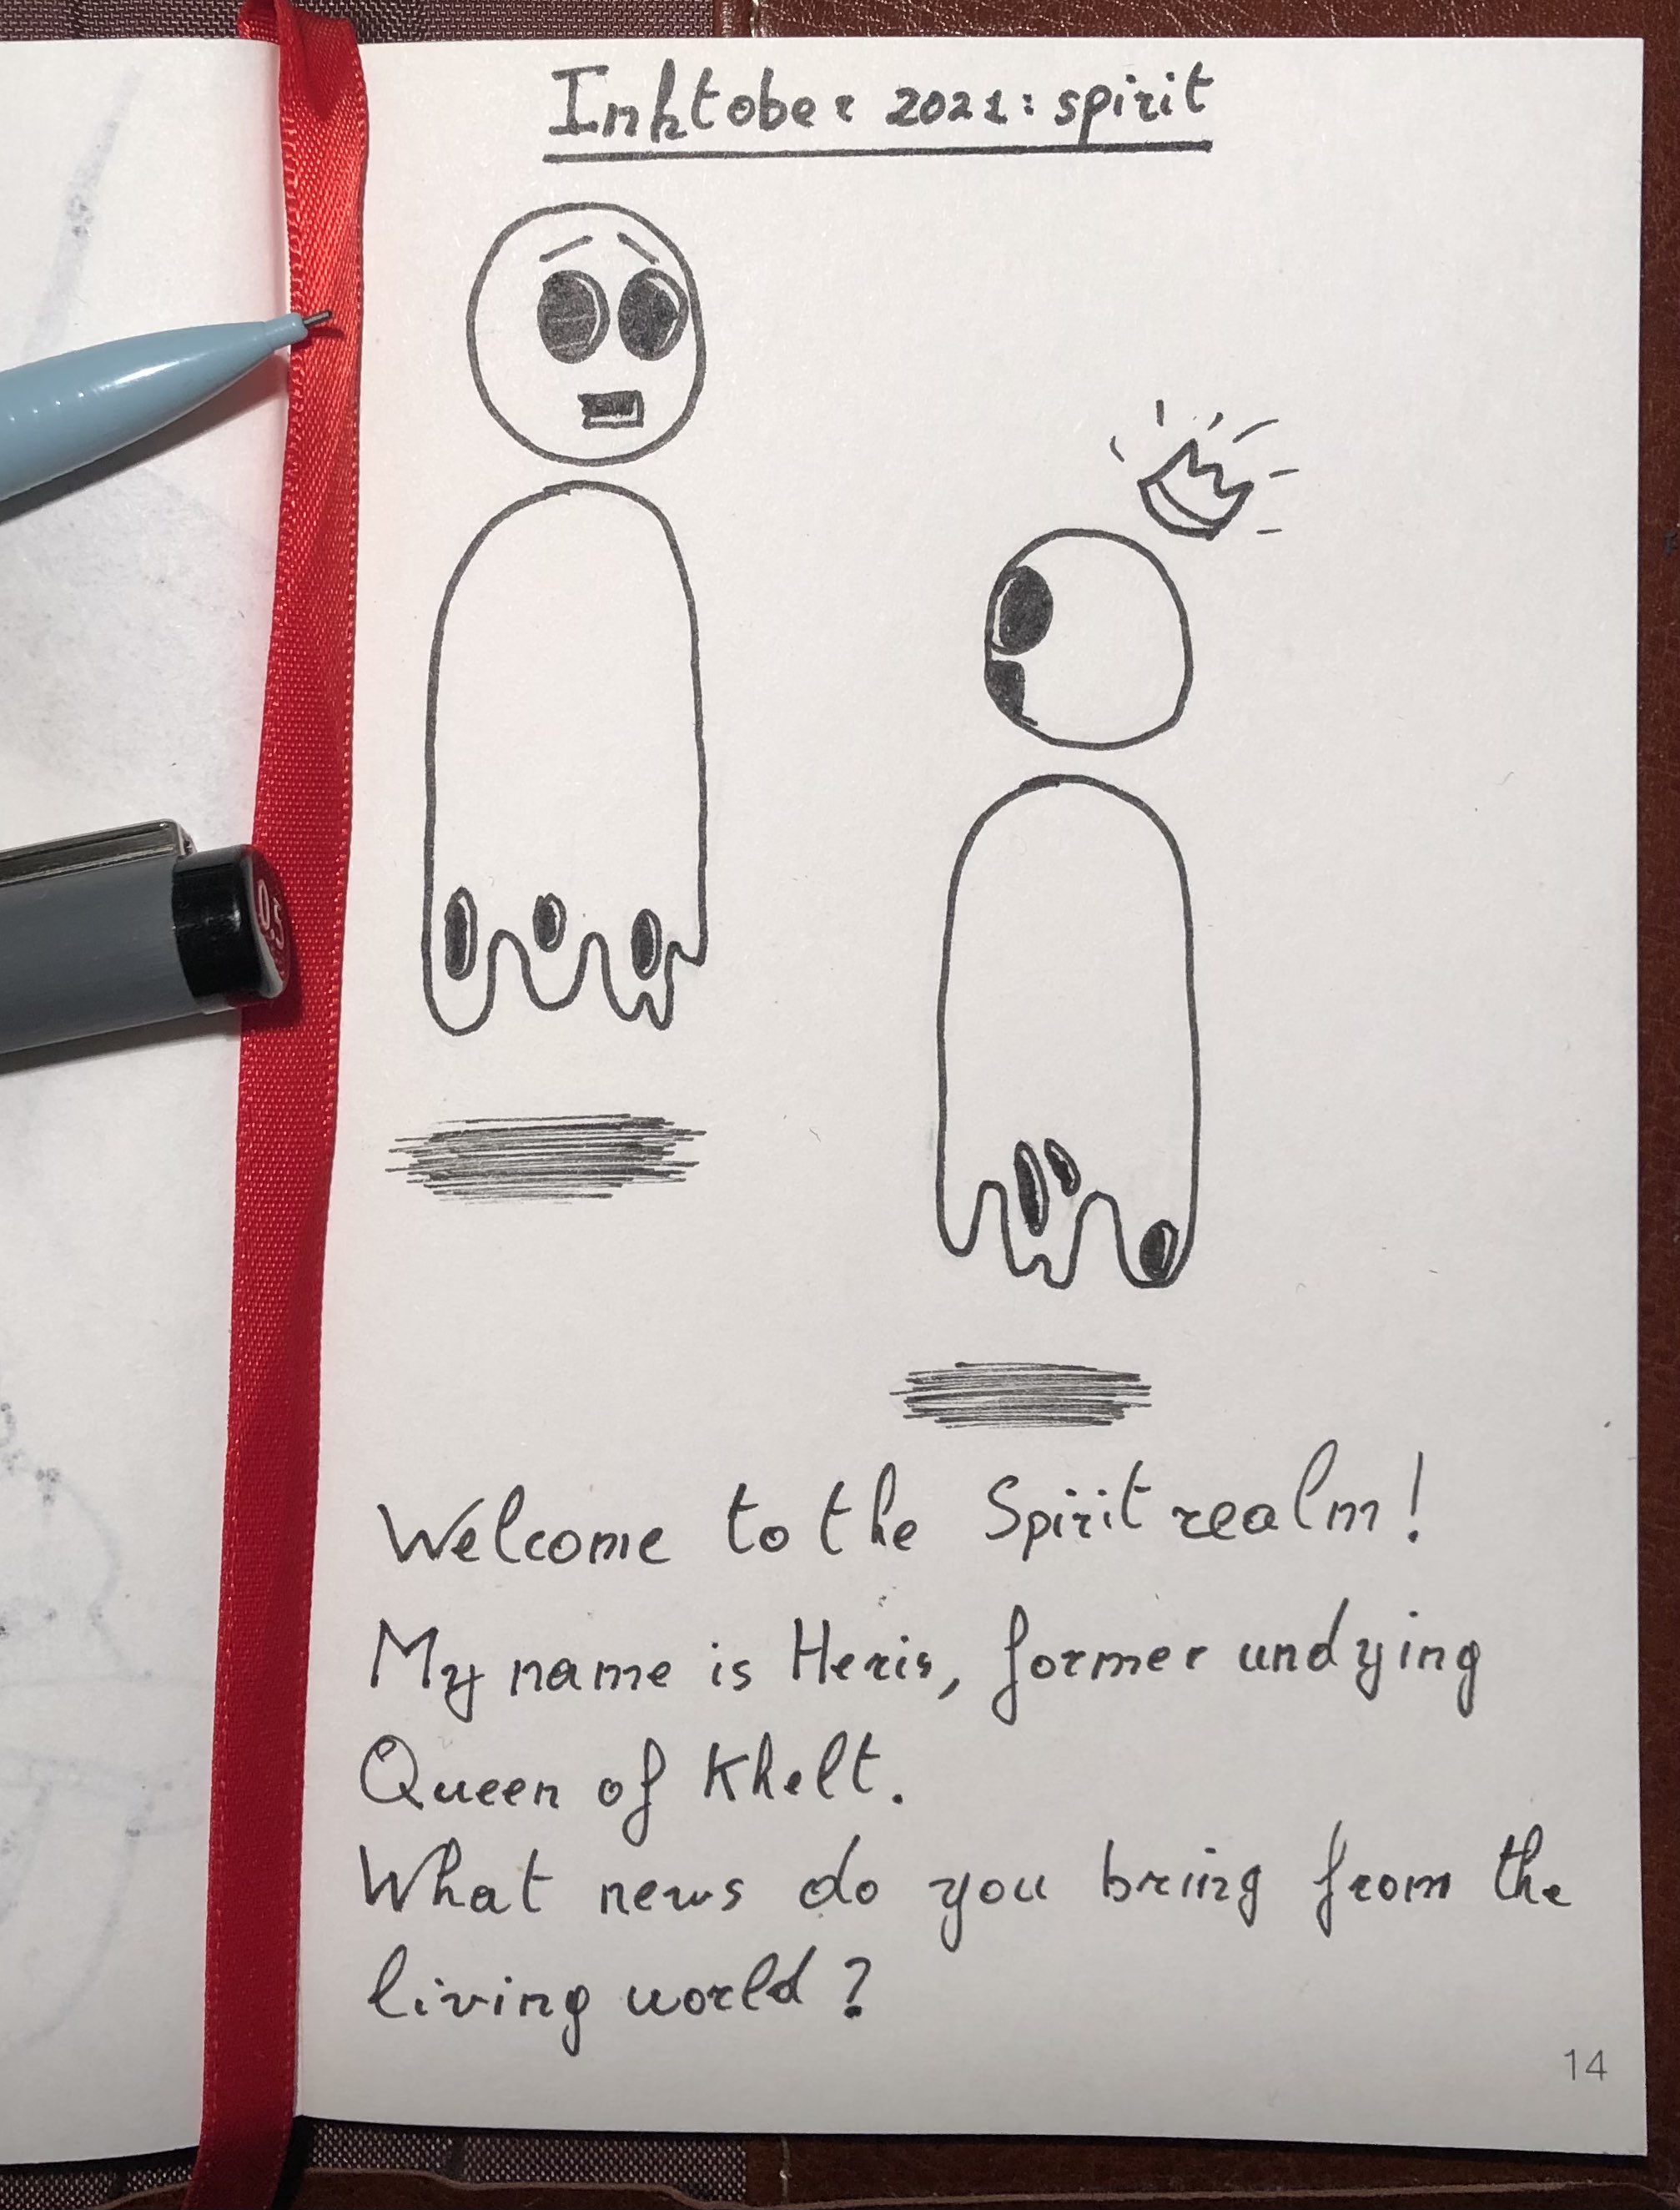 Inktober 2021: spirit
Welcome to the Spirit realm!
My name is Heris, former undying
Queen of Khelt.
What news do you bring from the
living world?
14
05